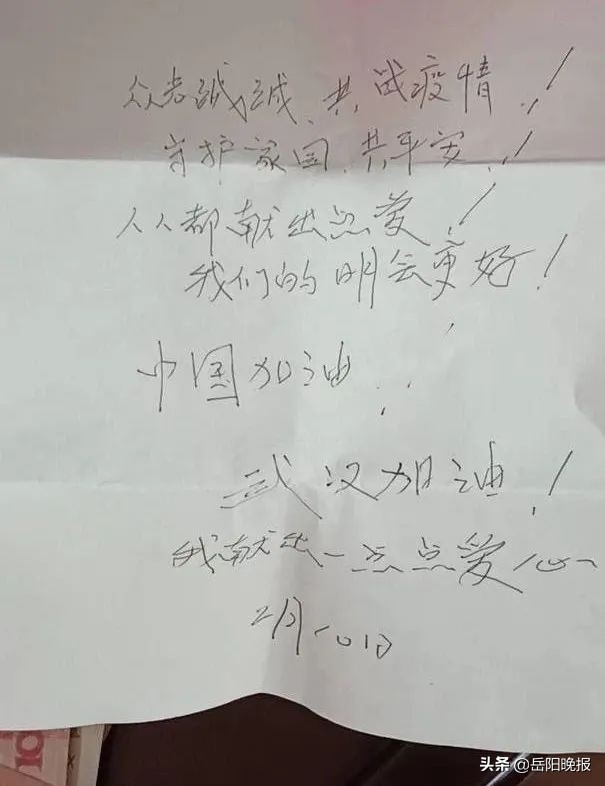 众志诚诚、共战疫情！
守护家国、共平安！
人人都献出点爱！
我们的明会更好！
中国加油
武汉加油！
我献出一点点爱心
2月10日
10
头条 @岳阳晚报